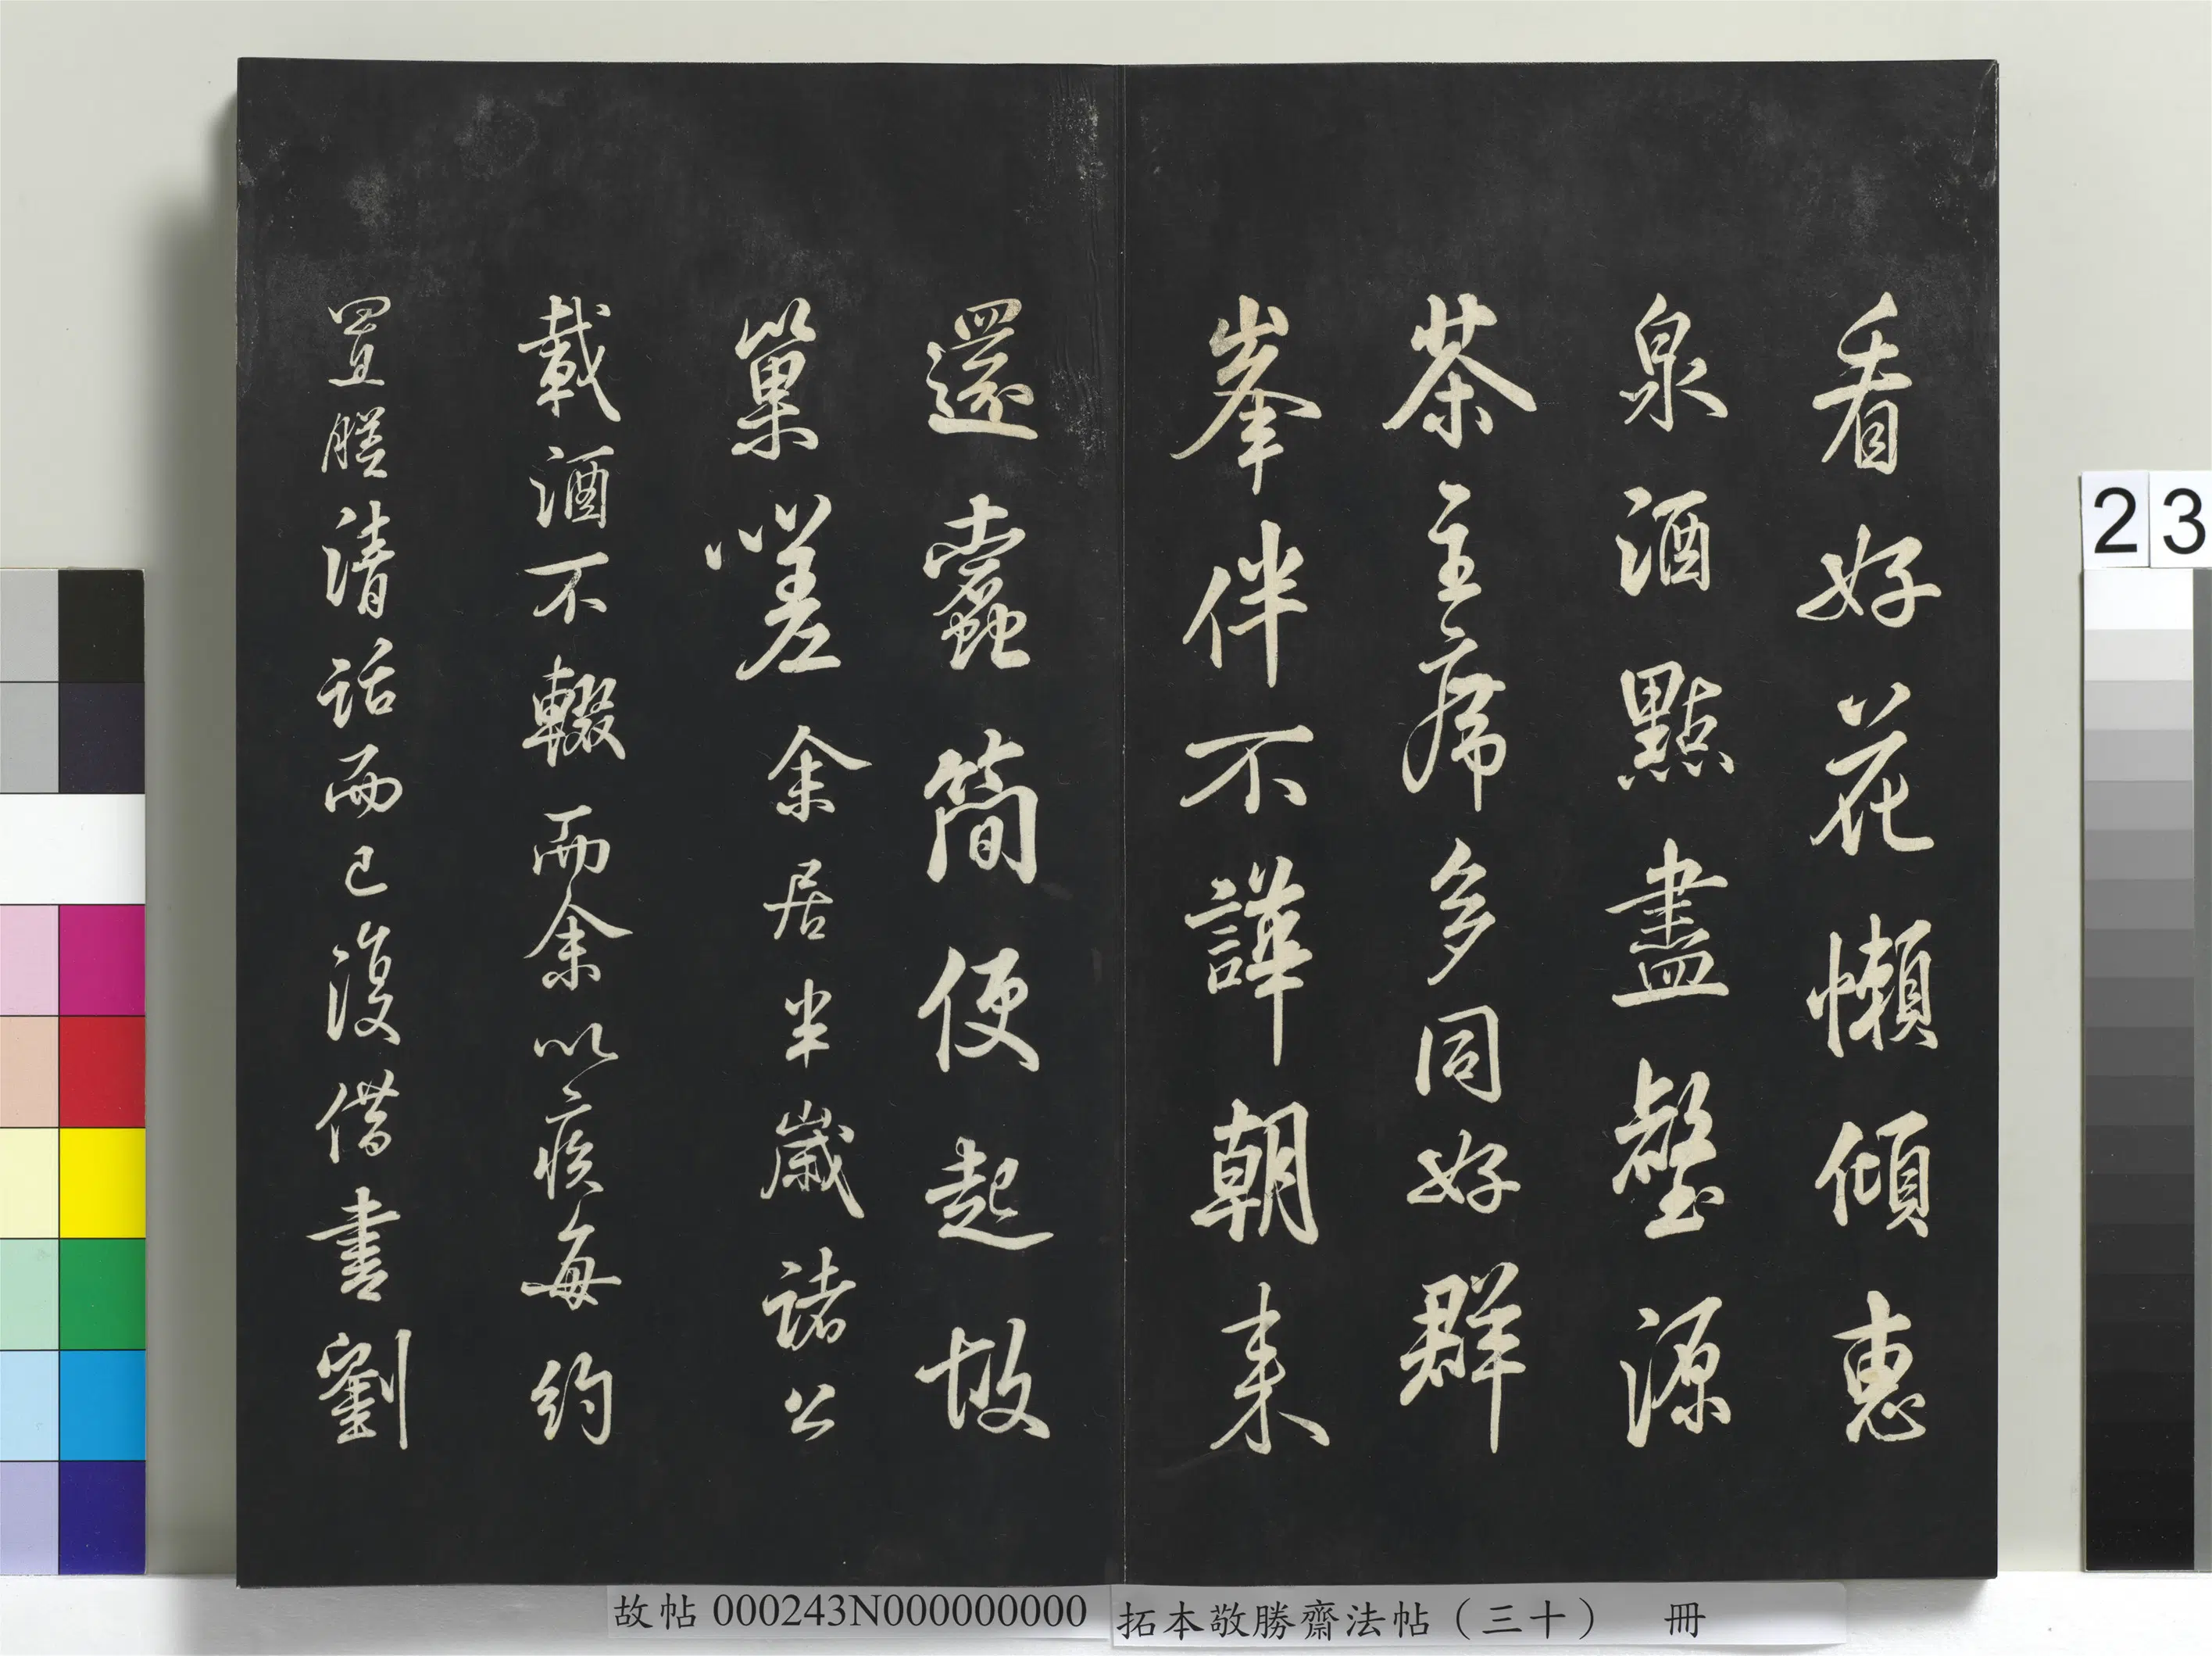 看好花懶傾惠
泉酒點盡壑源
茶主席多同好群
峯伴不譁朝来
還蠹簡便起故
巢嗟余居半歲諸公
載酒不輟而余以疾每約
置膳清話而已復借書劉
23
故帖 000243N000000000
拓本敬勝齋法帖（三十） 冊